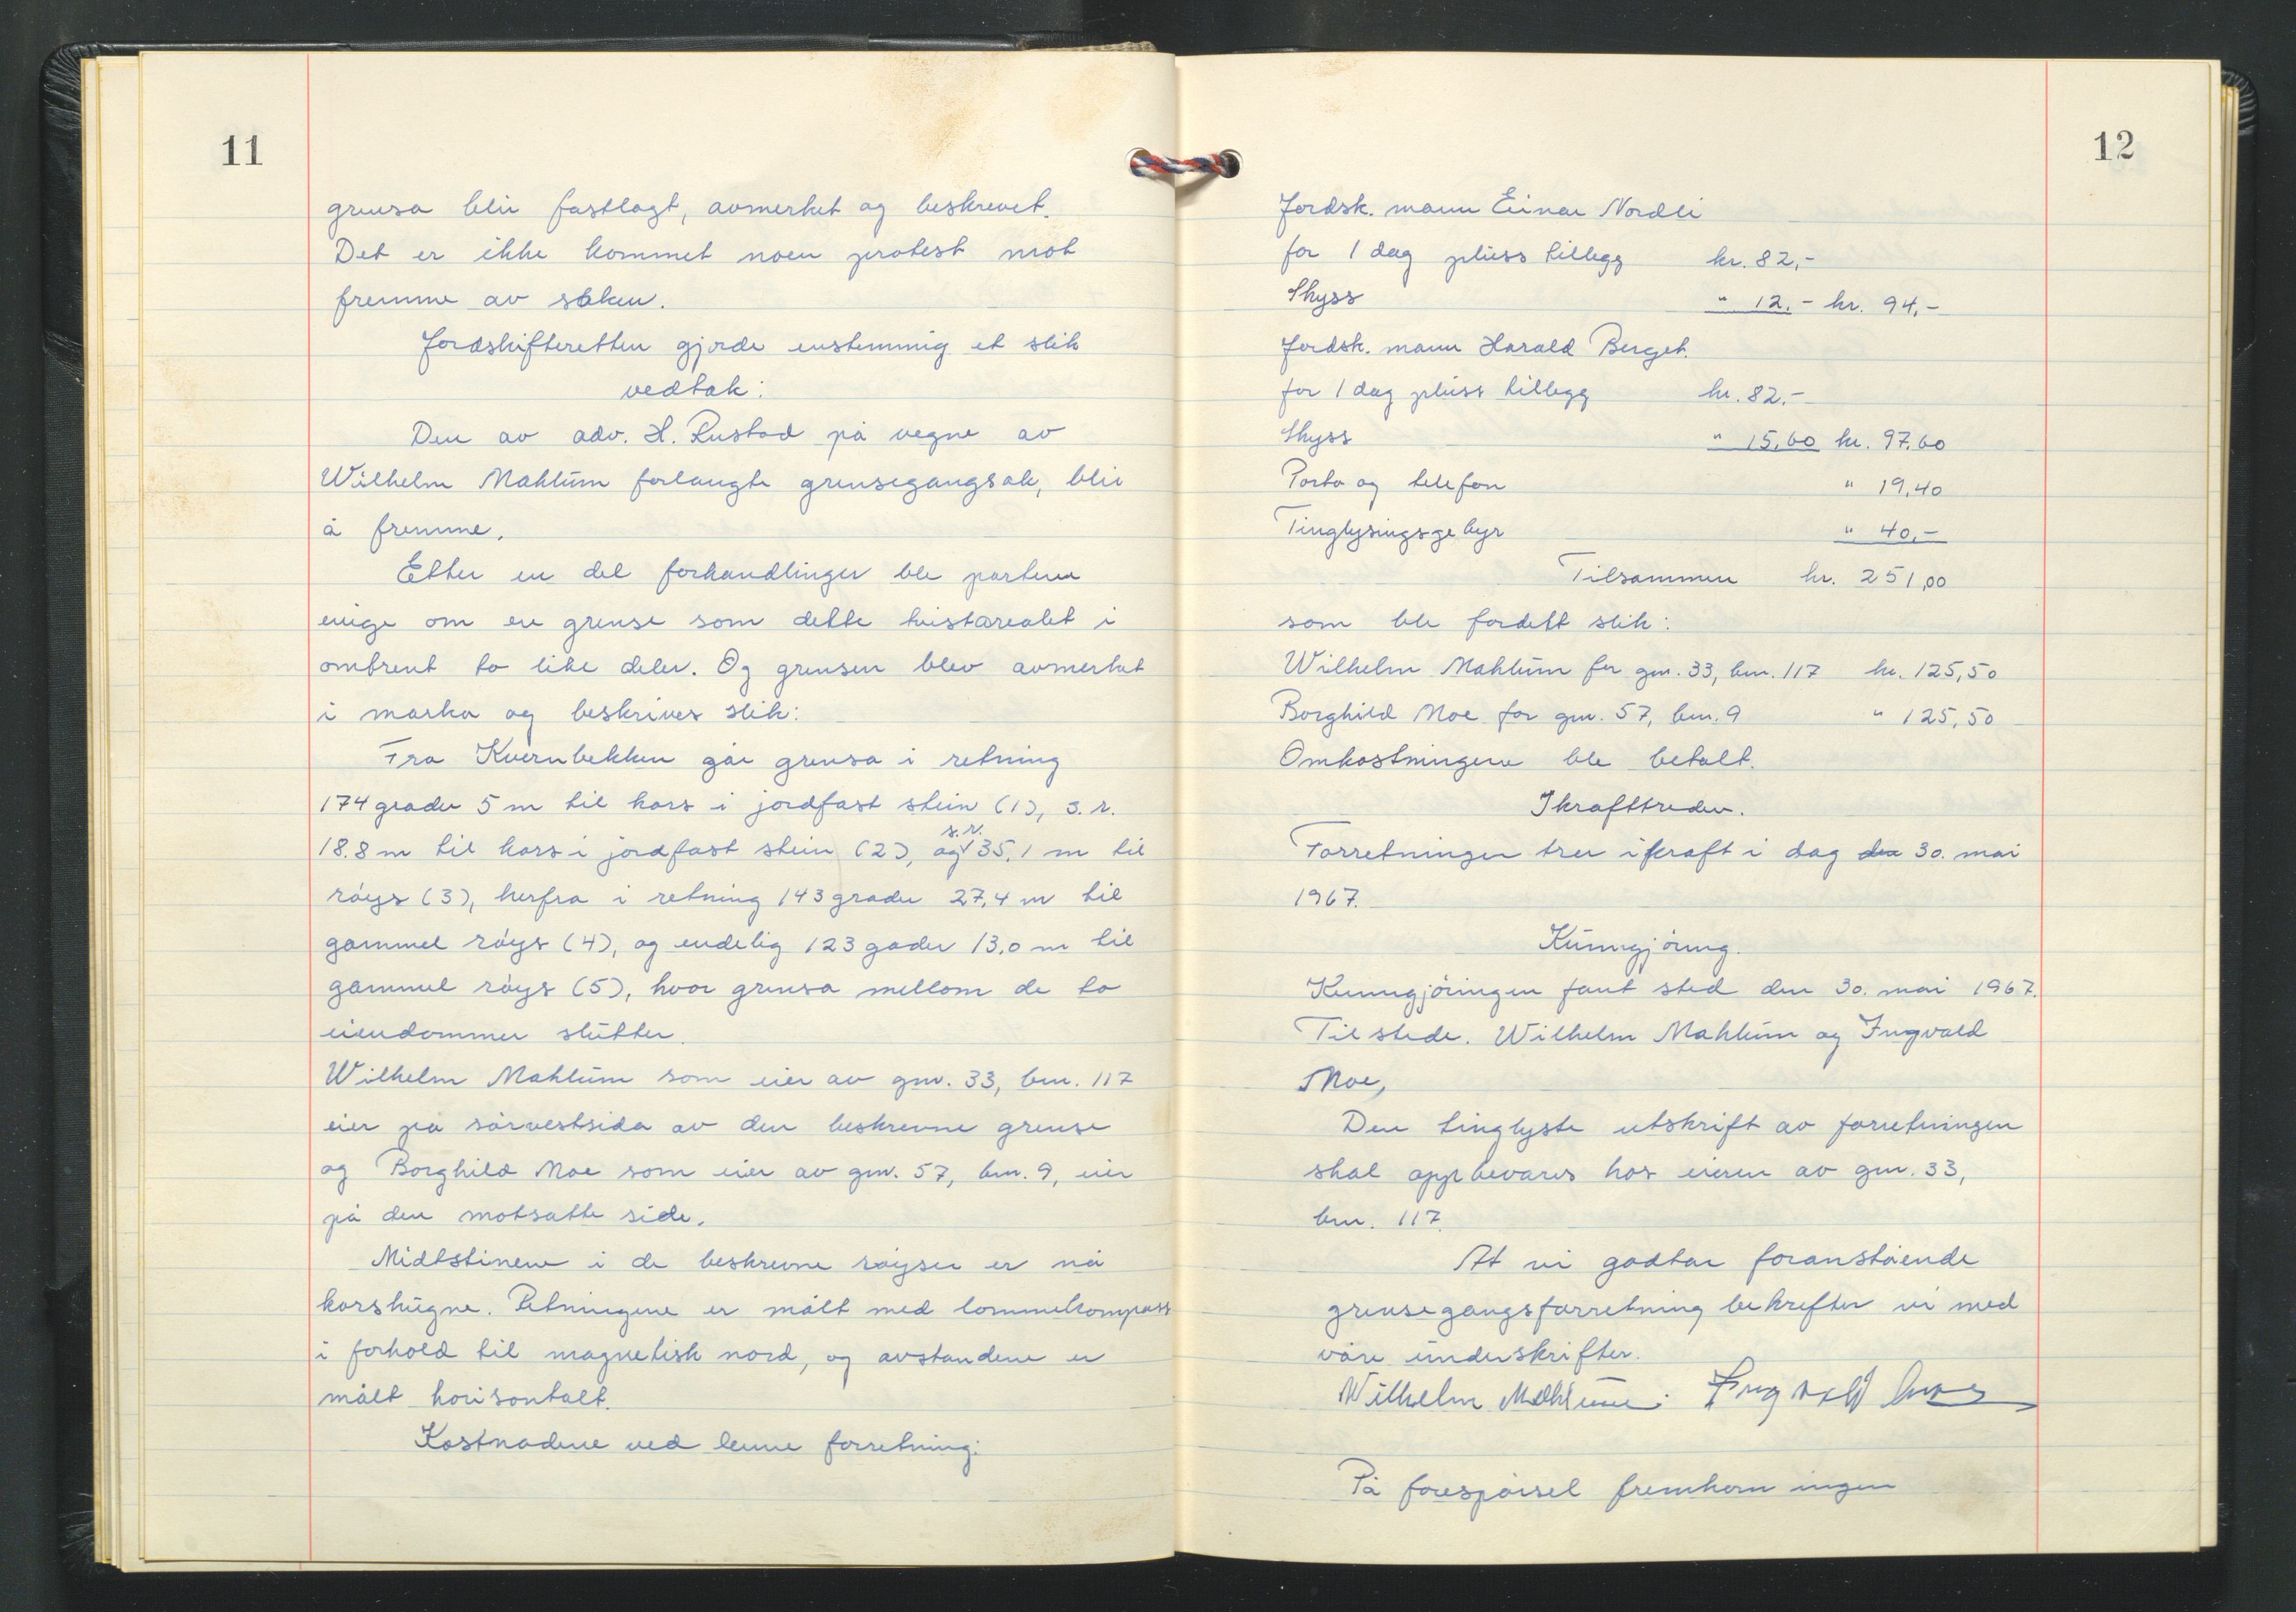 11
grensa blir fastlagt, avmerket og beskrevet.
Det er ikke kommet noen protest mot
fremme av saken.
Jordskifteretten gjorde enstemmig et slik
vedtak:
Den av adv. H. Rustad på vegne av
Wilhelm Mahlum forlangte grensegangsak, blir
å fremme.
Etter en del forhandlinger ble partene
enige om en grense som delte tvistarealet i
ombrent to like deler. Og grensen blev avmerket
i marka og beskrives slik:
Fra Kvernbekken går grensa i retning
174 grader 5 m til kors i jordfast stein (1), s.r.
18.8 m til kors i jordfast stein (2), og s.r. 35,1 m til
røys (3), herfra i retning 143 grader 27,4 m til
gammel røys (4), og endelig 123 gader 13,0 m til
gammel røys (5), hvor grensa mellom de to
eiendommer slutter.
Wilhelm Mahlum som eier av gnr. 33, bnr. 117
eier på sørvestsida av den beskrevne grense
og Borghild Moe som eier av gnr. 57, bnr. 9, eier
på den motsatte side.
Midtstinene i de beskrevne røyser er nå
korshugne. Retningene er målt med lommekompass
i forhold til magnetisk nord, og avstandene er
målt horisontalt.
Kostnadene ved denne forretning:
12
Jordsk. mann Einar Nordli
for 1 dag pluss tillegg kr. 82,-
Skyss " 12.- kr. 94,-
Jordsk. mann Harald Berget.
for 1 dag pluss tillegg kr. 82.-
Skyss " 15,60 kr. 97,60
Porto og telefon " 19,40
Tinglysingsgebyr " 40,-
Tilsammen kr. 251,00
som ble fordelt slik:
Wilhelm Mahlum for gnr. 33, bnr. 117 kr. 125,50
Borghild Moe for gnr. 57, bnr. 9 " 125,50
Omkostningene ble betalt.
Ikrafttreden.
Forretningen trer i kraft i dag den 30. mai
1967.
Kunngjøring.
Kunngjøringen fant sted den 30. mai 1967.
Til stede. Wilhelm Mahlum og Ingvald
Moe,
Den tinglyste utskrift av forretningen
skal oppbevares hos eieren av gnr. 33,
bnr. 117.
At vi godtar foranstående
grensegangsforretning bekrefter vi med
våre underskrifter.
Wilhelm Mahlum. Ingvald Moe
På forespørsel fremkom ingen